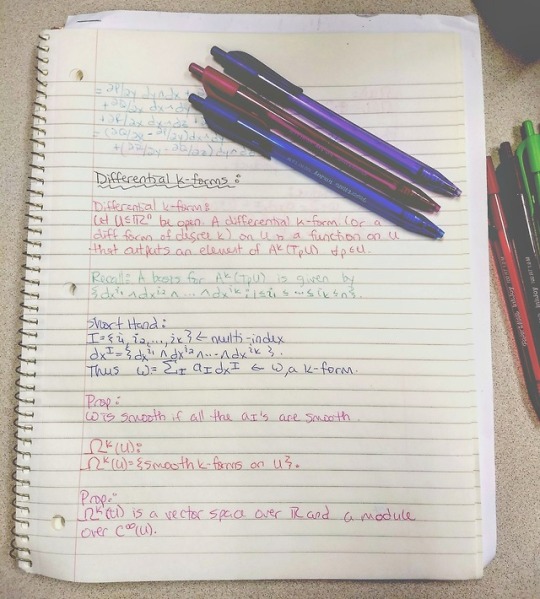 = ∂P/∂y dy∧dx +
+ ∂Q/∂x dx∧dy
+ ∂R/∂x dx∧dz
Differential k-forms:
Differential k-form:
Let U⊆ℝⁿ be open. A differential k-form (or a
diff form of degree k) on U is a function on U
that outputs an element of Λᵏ(TₚU) ∀p∈U.
Recall: A basis for Λᵏ(TₚU) is given by
{dxⁱ¹∧dxⁱ²∧...∧dxⁱᵏ: 1≤i₁≤...≤iₖ≤n}.
Short Hand:
I={i₁, i₂,..., iₖ} ← multi-index
dxᴵ={dxⁱ¹∧dxⁱ²∧...∧dxⁱᵏ}.
Thus ω=∑_I a_I dxᴵ ← ω, a k-form.
Prop:
ω is smooth if all the a_I's are smooth.
Ωᵏ(U):
Ωᵏ(U)={smooth k-forms on U}.
Prop:
Ωᵏ(U) is a vector space over ℝ and a module
over C^∞(U).